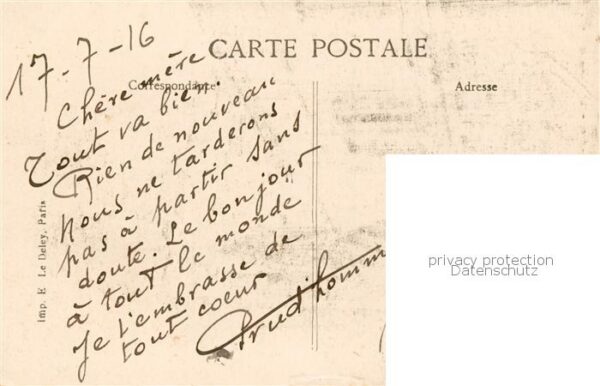 17-7-16
CARTE POSTALE
Correspondance
Adresse
Chère mère
Tout va bien.
Rien de nouveau
Nous ne tarderons
pas à partir sans
doute. Le bonjour
à tout le monde
Je t'embrasse de
tout coeur
Prud'homm
Imp. E. Le Deley, Paris
privacy protection
Datenschutz